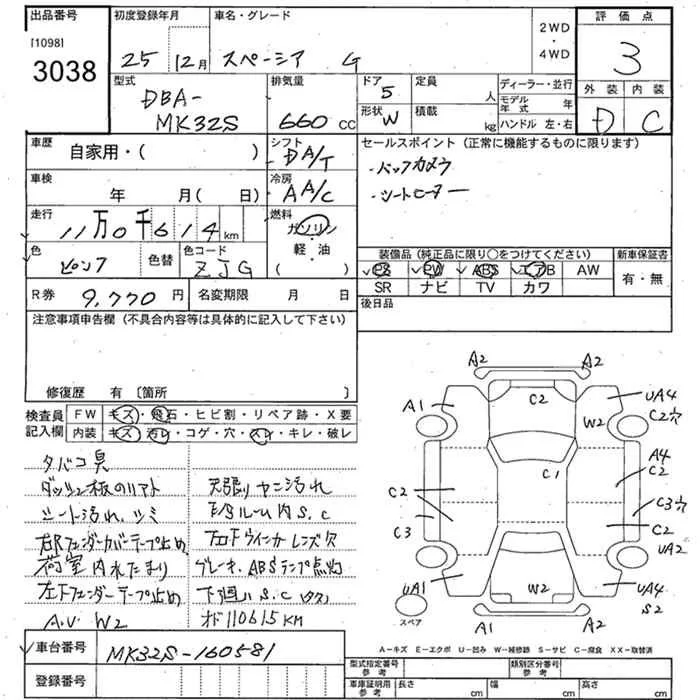 出品番号
[1098]
3038
初度登録年月
25 12月
車名・グレード
スペーシア G
2WD
・
4WD
評価点
3
外装 内装
D C
型式
DBA-
MK32S
排気量
660 cc
ドア
5
定員
人
形状
W
積載
kg
ディーラー・並行
モデル年式 年
ハンドル 左・右
車歴
自家用・( )
シフト
DA/T
車検
年 月( 日)
冷房
AA/C
走行
11万0千614km
燃料
ガソリン
・
軽・油
色
ピンク
色替
色コード
ZJG
R券
9,770円
名変期限 月 日
セールスポイント(正常に機能するものに限ります)
・バックカメラ
・シートヒーター
装備品(純正品に限り○をつけてください)
PS PW ABS エアB AW
SR ナビ TV カワ
新車保証書
有・無
後日品
注意事項申告欄(不具合内容等は具体的に記入して下さい)
修復歴 有〔箇所 〕
検査員記入欄
FW キズ・飛石・ヒビ割・リペア跡・X要
内装 キズ・汚レ・コゲ・穴・スレ・キレ・破レ
タバコ臭
ダッシュ板のリアト
シート汚れ、シミ
右Rフェンダーカバーテープ止め
荷室内水たまり
左下フェンダーテープ止め
A.V. W2
天張りヤニ汚れ
E/Sルーム内 S.C
左右Fウインカーレンズ欠
ブレーキ、ABSランプ点灯
下廻り S.C
オド110615KM
A2 A2
A1 C2 UA4
W2 C2穴
A4
C1 C2
C2
C3穴
C3 C2
UA2
UA1 W2 UA4
S2
スペア
A1 A2
A-キズ E-エクボ U-凹み W-補修跡 S-サビ C-腐食 XX-取替済
車台番号
MK32S-160581
登録番号
型式指定番号
参考
類別区分番号
参考
車庫証明用
参考
長さ cm
幅 cm
高さ cm